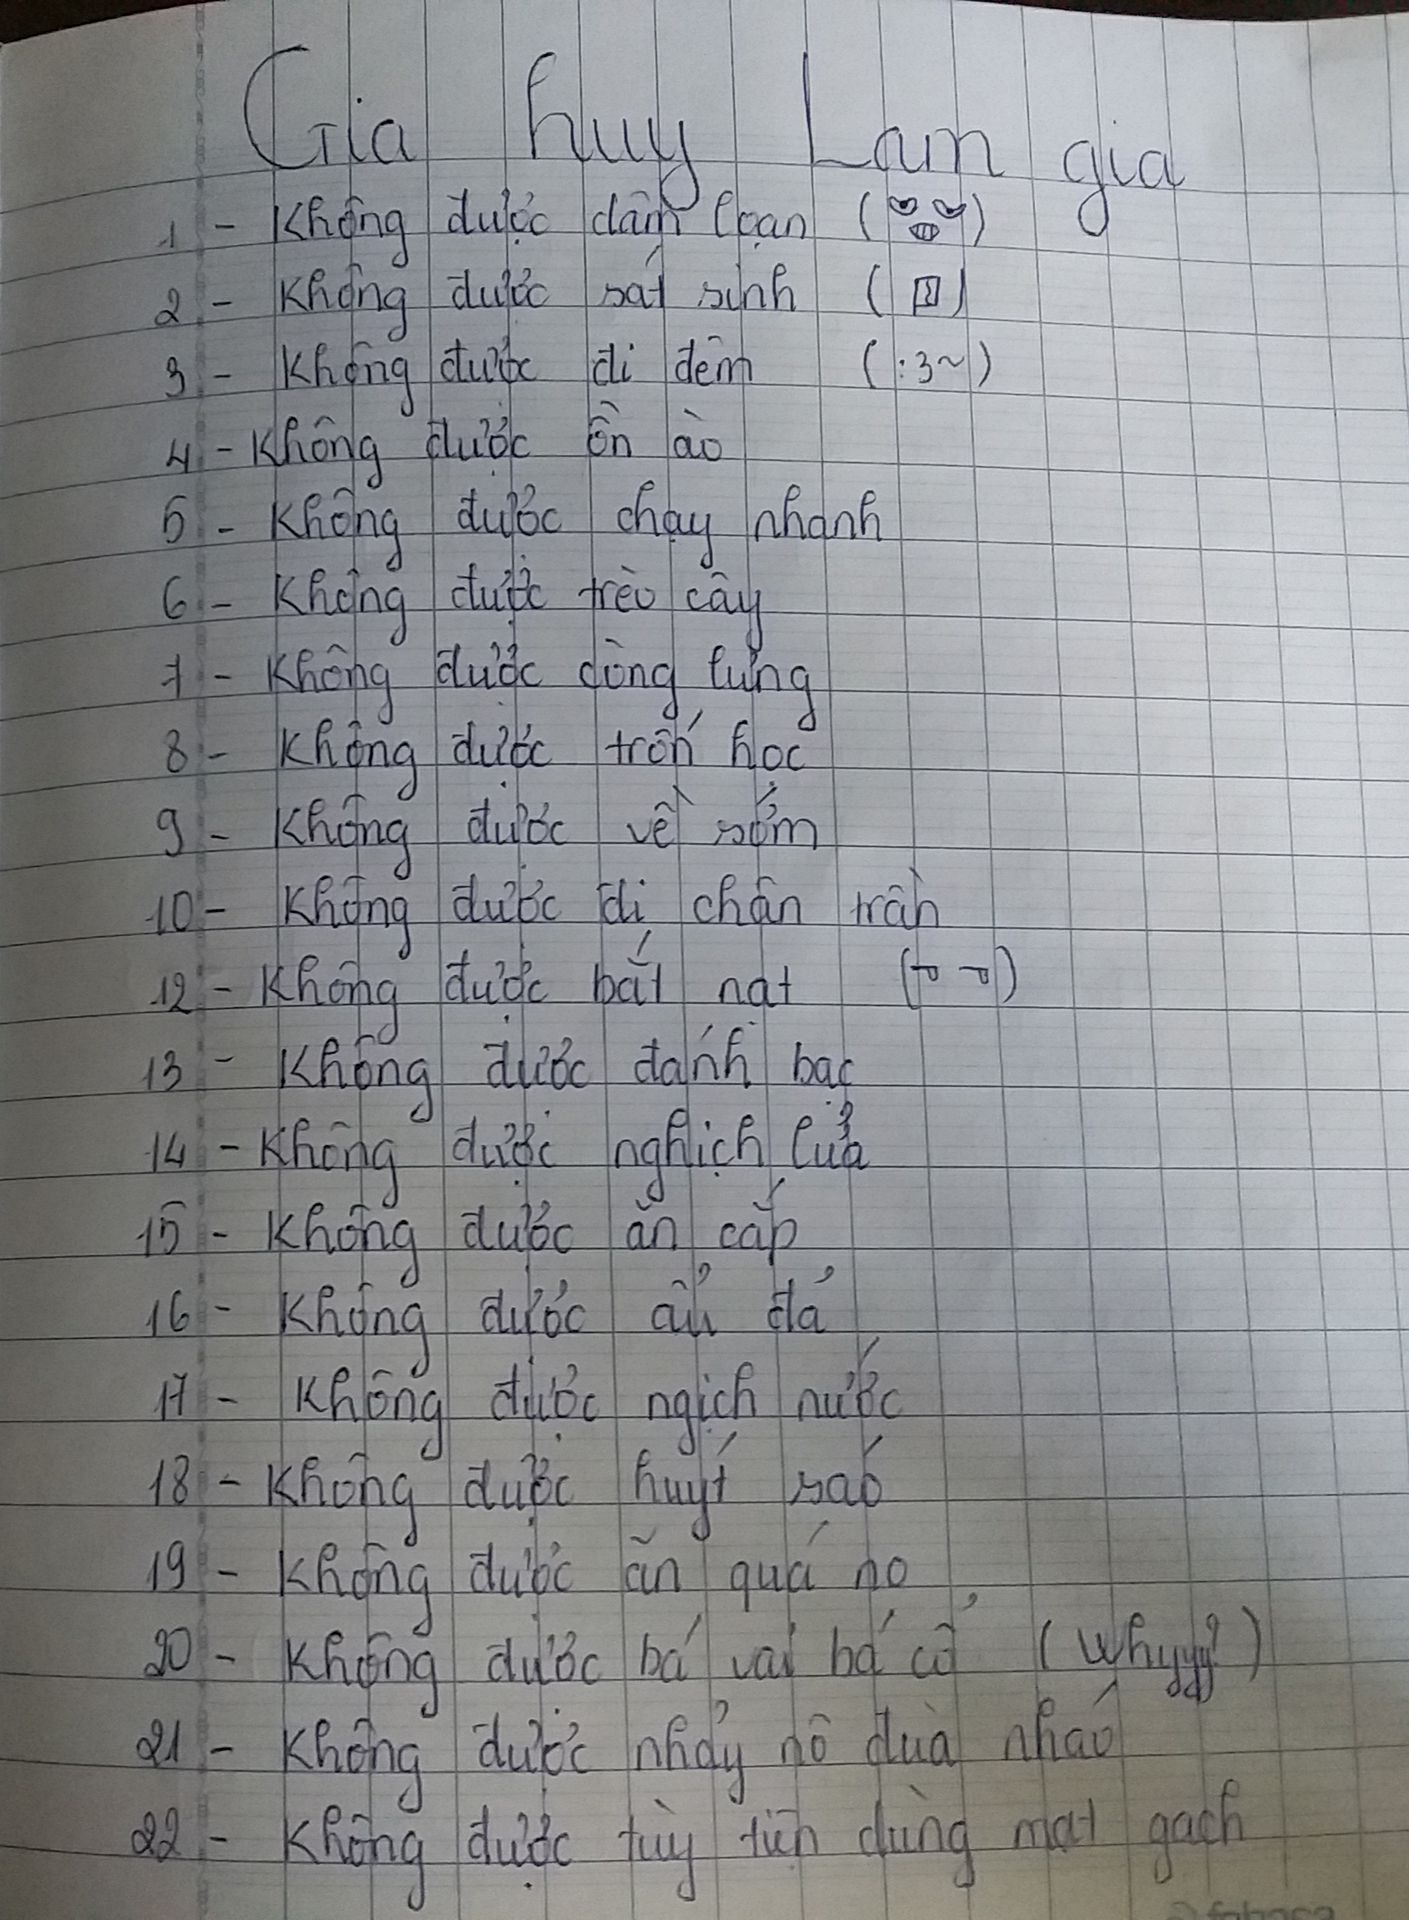 Gia huy Lam gia
1 - Không được dâm loạn
2 - Không được sát sinh
3 - Không được đi đêm ( :3~ )
4 - Không được ồn ào
5 - Không được chạy nhanh
6 - Không được trèo cây
7 - Không được dòng lưng
8 - Không được trốn học
9 - Không được về sớm
10 - Không được đi chân trần
12 - Không được bắt nạt
13 - Không được đánh bạc
14 - Không được nghịch lửa
15 - Không được ăn cắp
16 - Không được ẩu đả
17 - Không được ngịch nước
18 - Không được huýt sáo
19 - Không được ăn quá no
20 - Không được bá vai bá cổ (Whyyy?)
21 - Không được nhảy nô đùa nháo
22 - Không được tùy tiện dùng mạt gạch